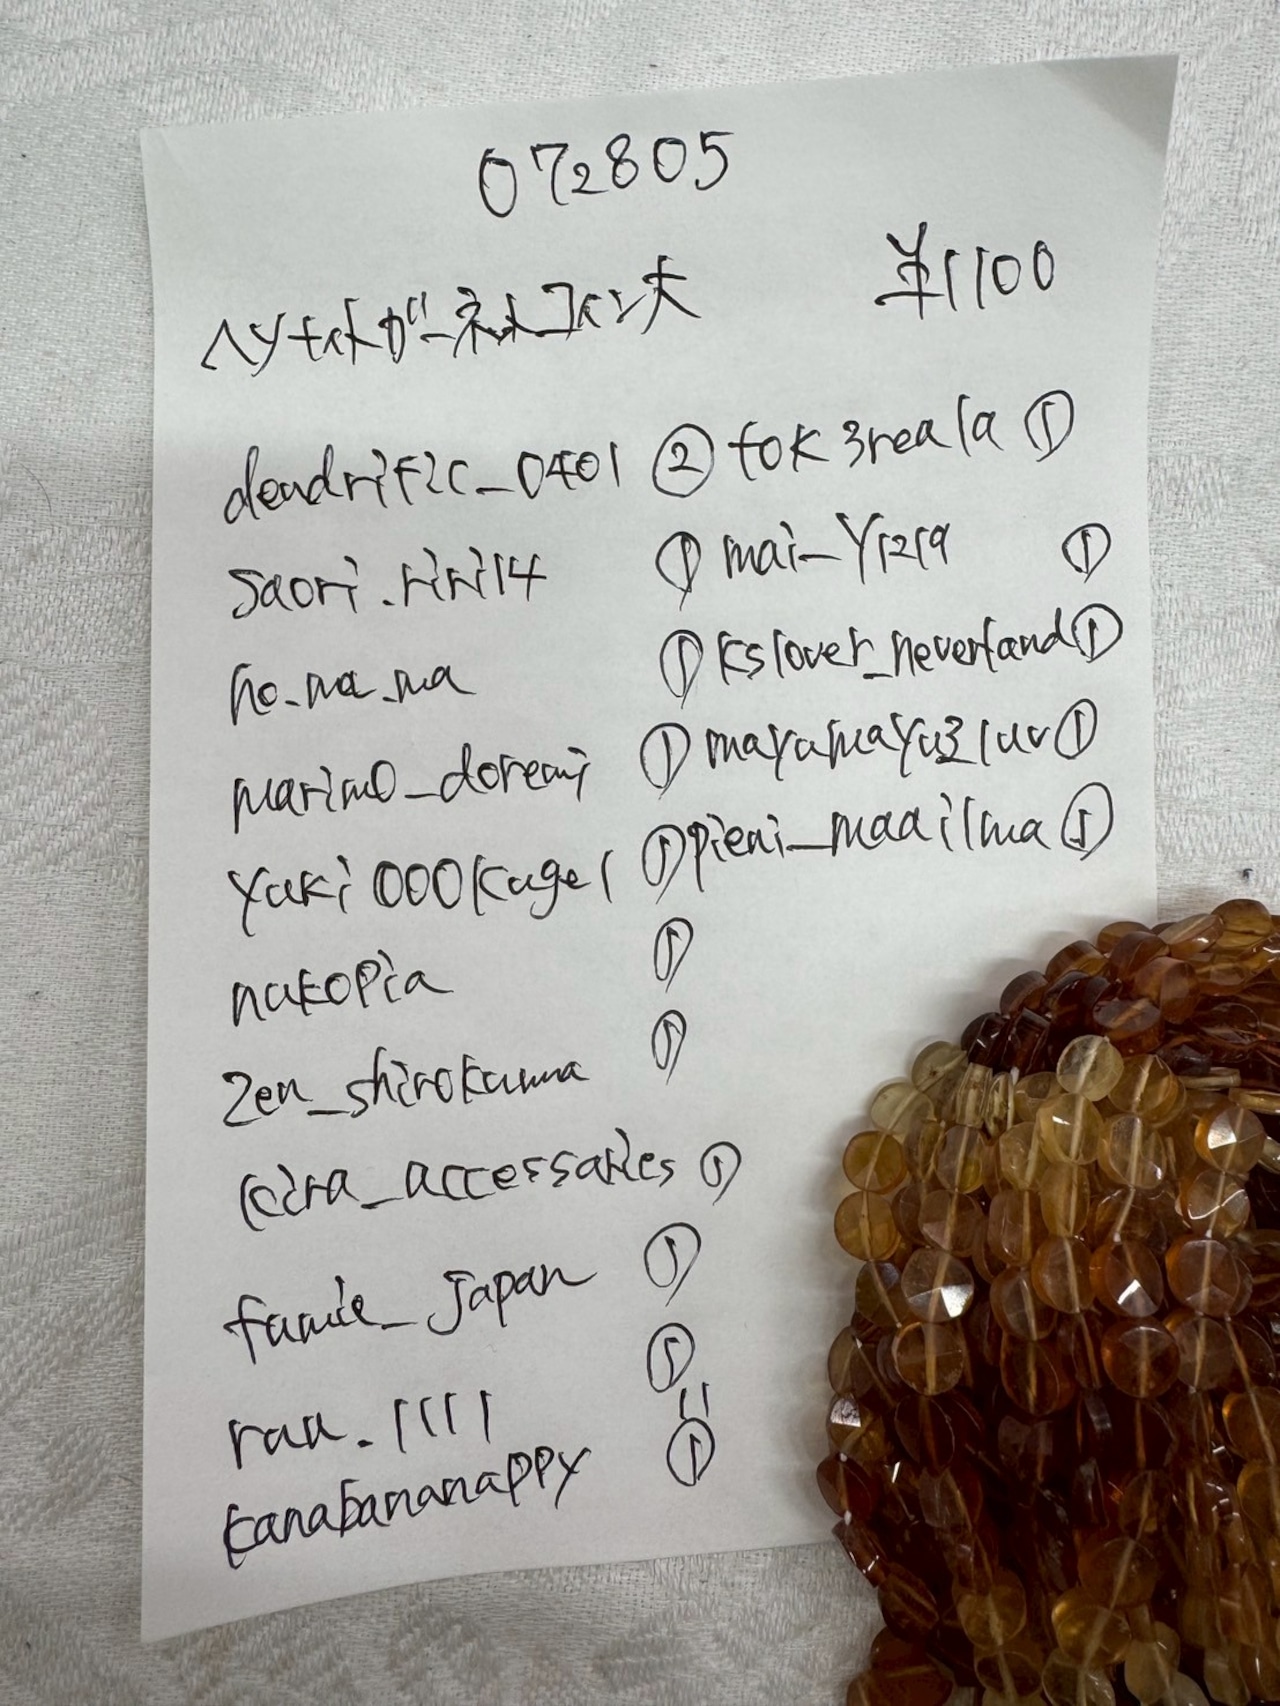 072805
ヘソナイトガーネットコイン大 ¥1100
dendrific_0401 ② tok3reala ①
saori.riri14 ① mai_y1219 ①
ho_na_na ① kslover_neverland ①
marimo_doremi ① mayumayu31uv ①
yuki000kage1 ① pieni_maailma ①
nakopia ①
zen_shirokuma ①
kira_accessaries ①
famie_japan ①
rau.1111 ①
kanabananappy ①